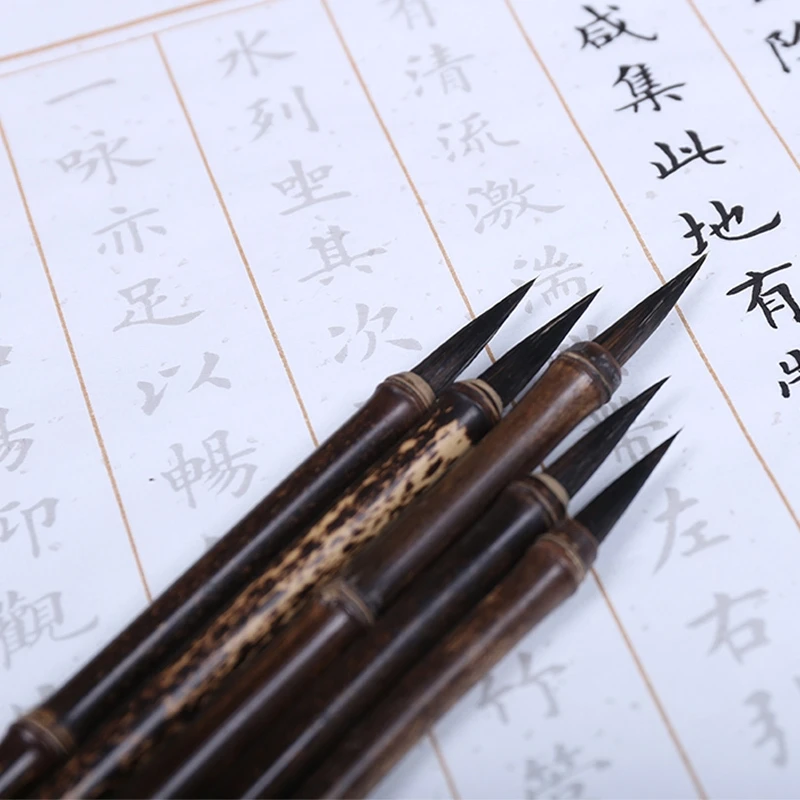 咸集此地有
有清流激湍帶左右引
水列坐其次竹管
一咏亦足以暢
觀